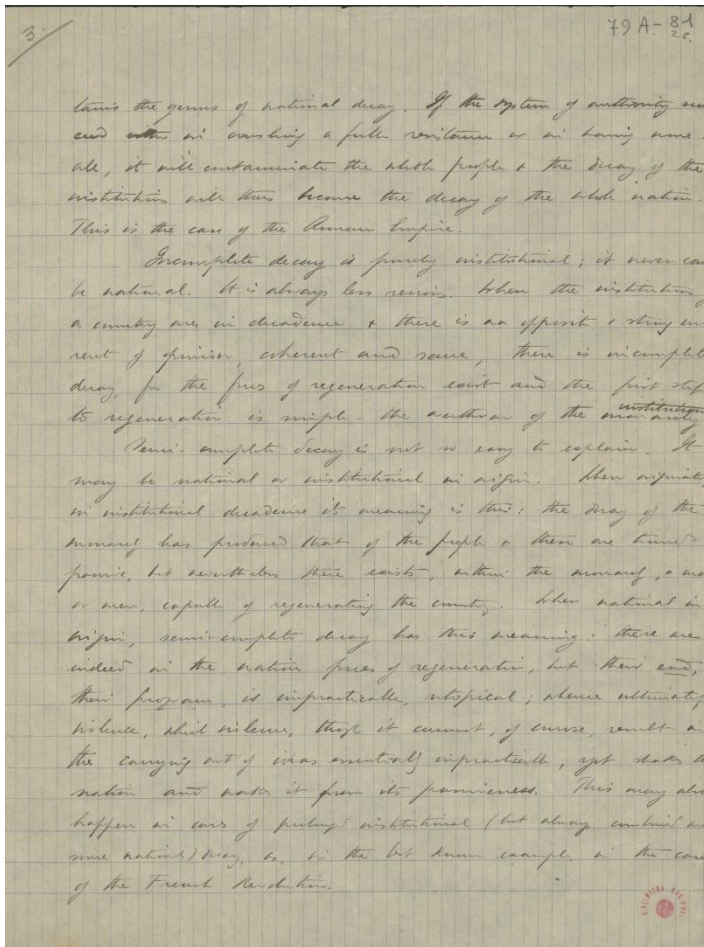 3.
79 A - 81
tains the germs of national decay. If the system of authority
in crushing a futile resistance or in having none
all, it will contaminate the whole people & the decay of the
institutions will thus become the decay of the whole nation.
This is the case of the Roman Empire.
Incomplete decay is purely institutional; it never can
be national. It is always less serious. When the institutions
a country are in decadence & there is an opposite & strong cur
rent of opinion, coherent and sane, there is incomplete
decay, for the forces of regeneration exist and the first step
to regeneration is simple - the overthrow of the monarchy institutions
Semi-complete decay is not so easy to explain. It
may be national or institutional in origin. When originated
in institutional decadence its meaning is this: the decay of the
monarchy has produced that of the people & these are turned
passive, but nevertheless there exists, within the monarchy, a man
or men, capable of regenerating the country. When national in
origin, semi-complete decay has this meaning: there are
indeed in the nation forces of regeneration, but their end,
their program, is impracticable, utopical; whence ultimately
violence, which violence, though it cannot, of course, result in
the carrying out of ideas essentially impracticable, yet shakes the
nation and wakes it from its passiveness. This may also
happen in cases of prolonged institutional (but always combined
some national) decay, as, in the best known example, in the case
of the French Revolution.